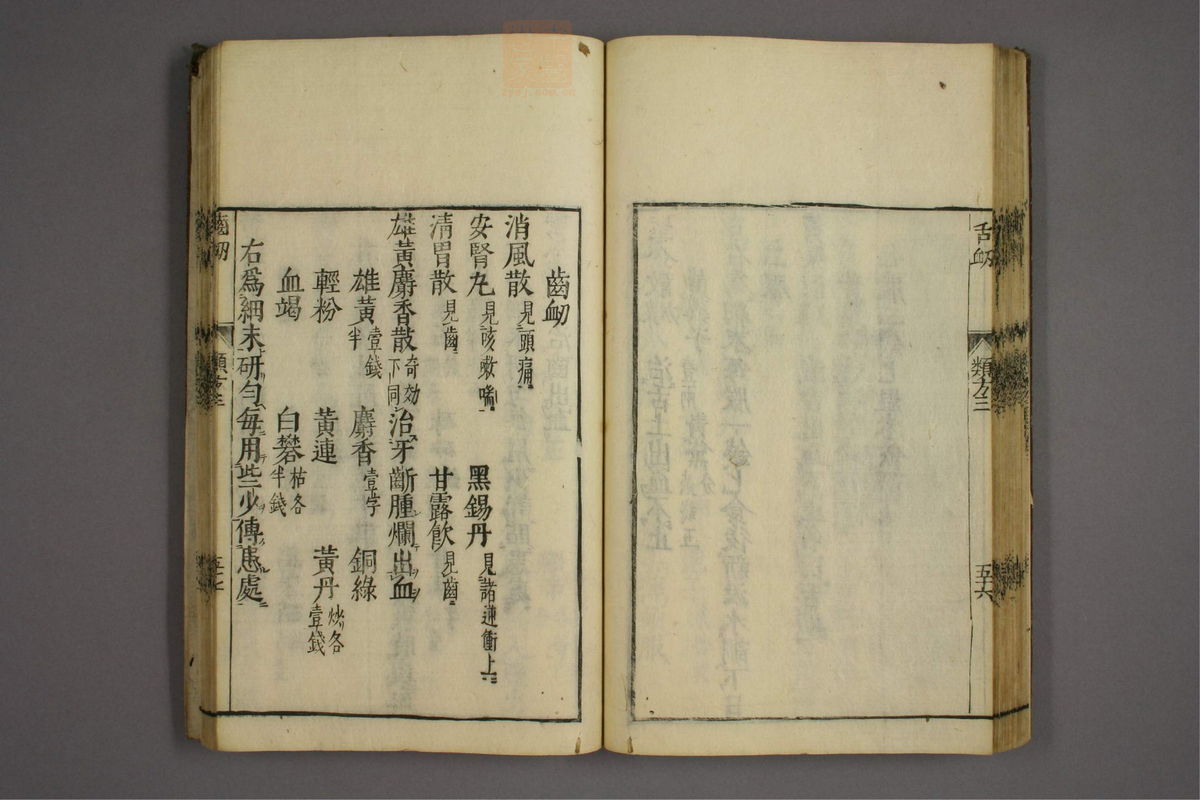 舌衂
類方三
五十六
齒衂
消風散 見頭痛
安腎丸 見咳嗽喘 黑錫丹 見諸逆衝上
清胃散 見齒 甘露飲 見齒
雄黃麝香散 奇効下同 治牙齗腫爛出血
雄黃 壹錢半 麝香 壹字 銅綠
輕粉 黃連 黃丹 炒各壹錢
血竭 白礬 枯各半錢
右爲細末研匀每用些少傅患處
齒衂
類方三
五十七